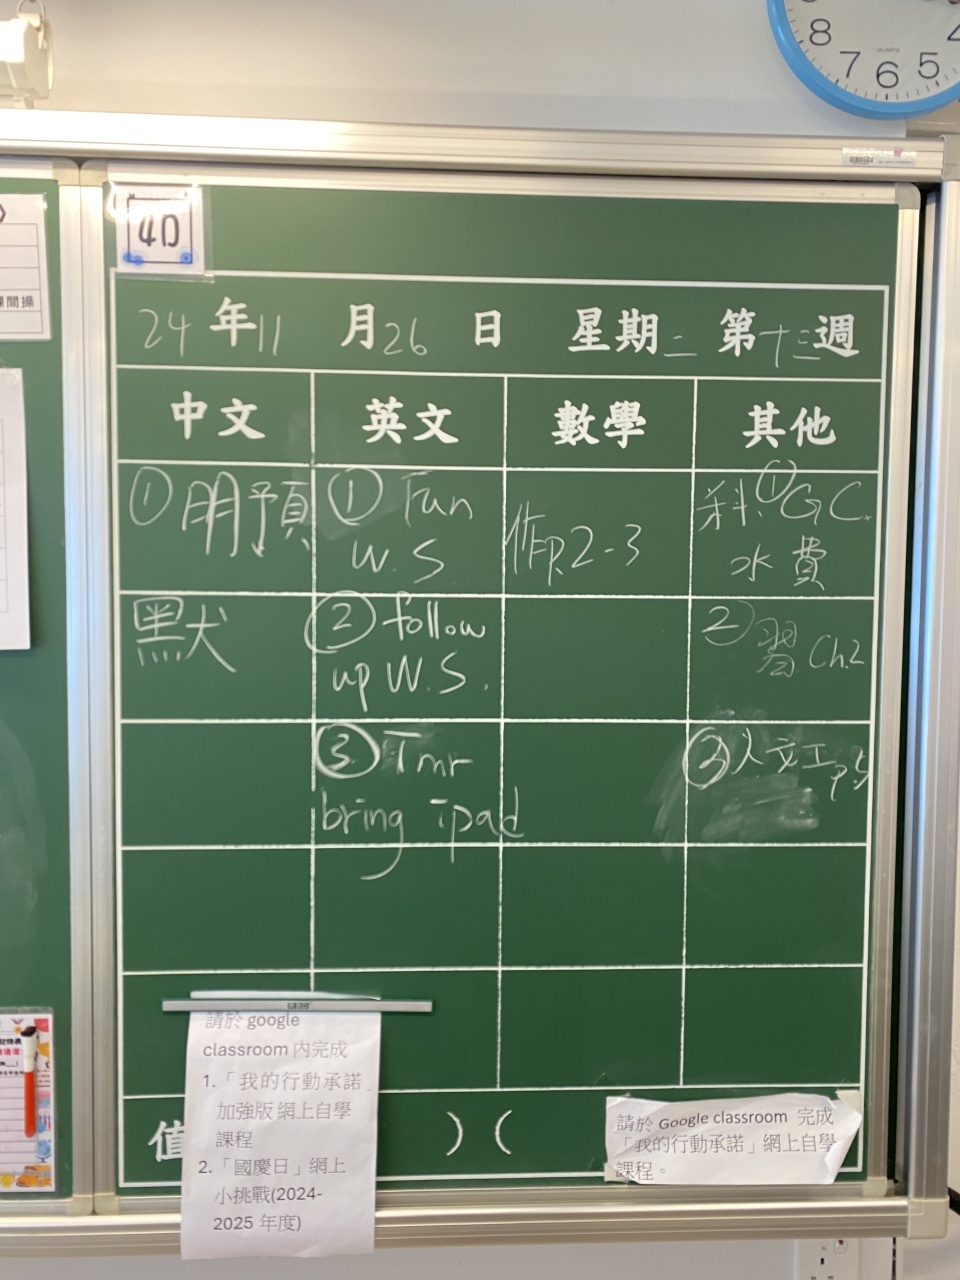 8
7
6
5
4
QUARTZ
4D
24年11月26日 星期二 第十三週
中文 英文 數學 其他
① 朋預
默犬
① Fun
W.S
② follow
up W.S.
③ Tmr
bring ipad
作P.2-3
①GC
水費
② 習 Ch.2
③人文工P.5
值
) (
請於 google
classroom 內完成
1.「我的行動承諾」
加強版 網上自學
課程
2.「國慶日」網上
小挑戰(2024-
2025 年度)
請於 Google classroom 完成
「我的行動承諾」網上自學
課程。
間操